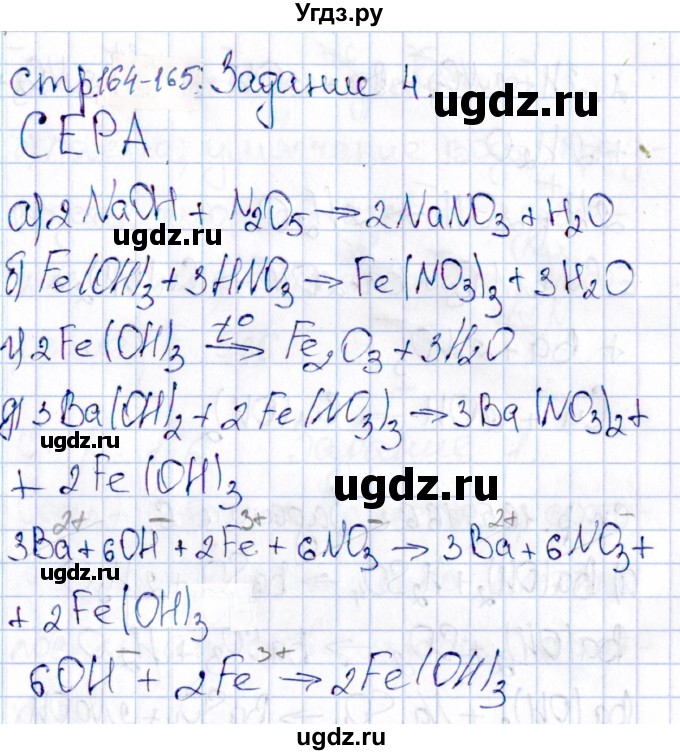 Угдз.ру
стр.164-165. Задание 4.
ugdz.ru
СЕРА
а) 2NaOH + N2O5 → 2NaNO3 + H2O
ugdz.ru
б) Fe(OH)3 + 3HNO3 → Fe(NO3)3 + 3H2O
г) 2Fe(OH)3 t° → Fe2O3 + 3H2O
ugdz.ru
д) 3Ba(OH)2 + 2Fe(NO3)3 → 3Ba(NO3)2 +
ugdz.ru
+ 2Fe(OH)3
ugdz.ru
3Ba²⁺ + 6OH⁻ + 2Fe³⁺ + 6NO3⁻ → 3Ba²⁺ + 6NO3⁻ +
ugdz.ru
+ 2Fe(OH)3
6OH⁻ + 2Fe³⁺ → 2Fe(OH)3
ugdz.ru
ugdz.ru